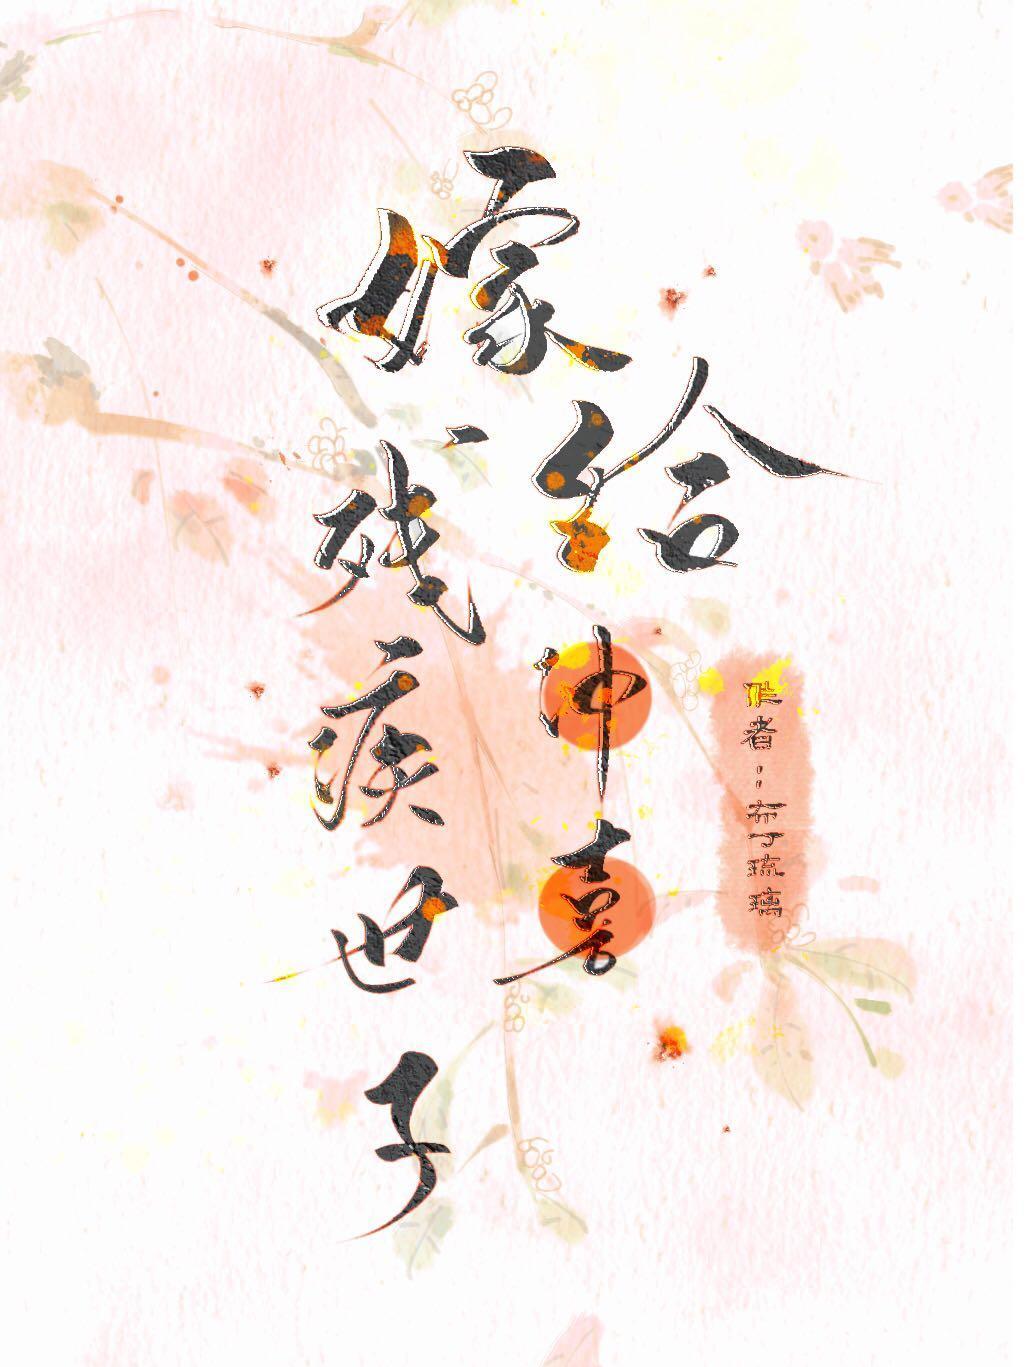 嫁给
残疾世子
冲喜
作者：布丁琉璃